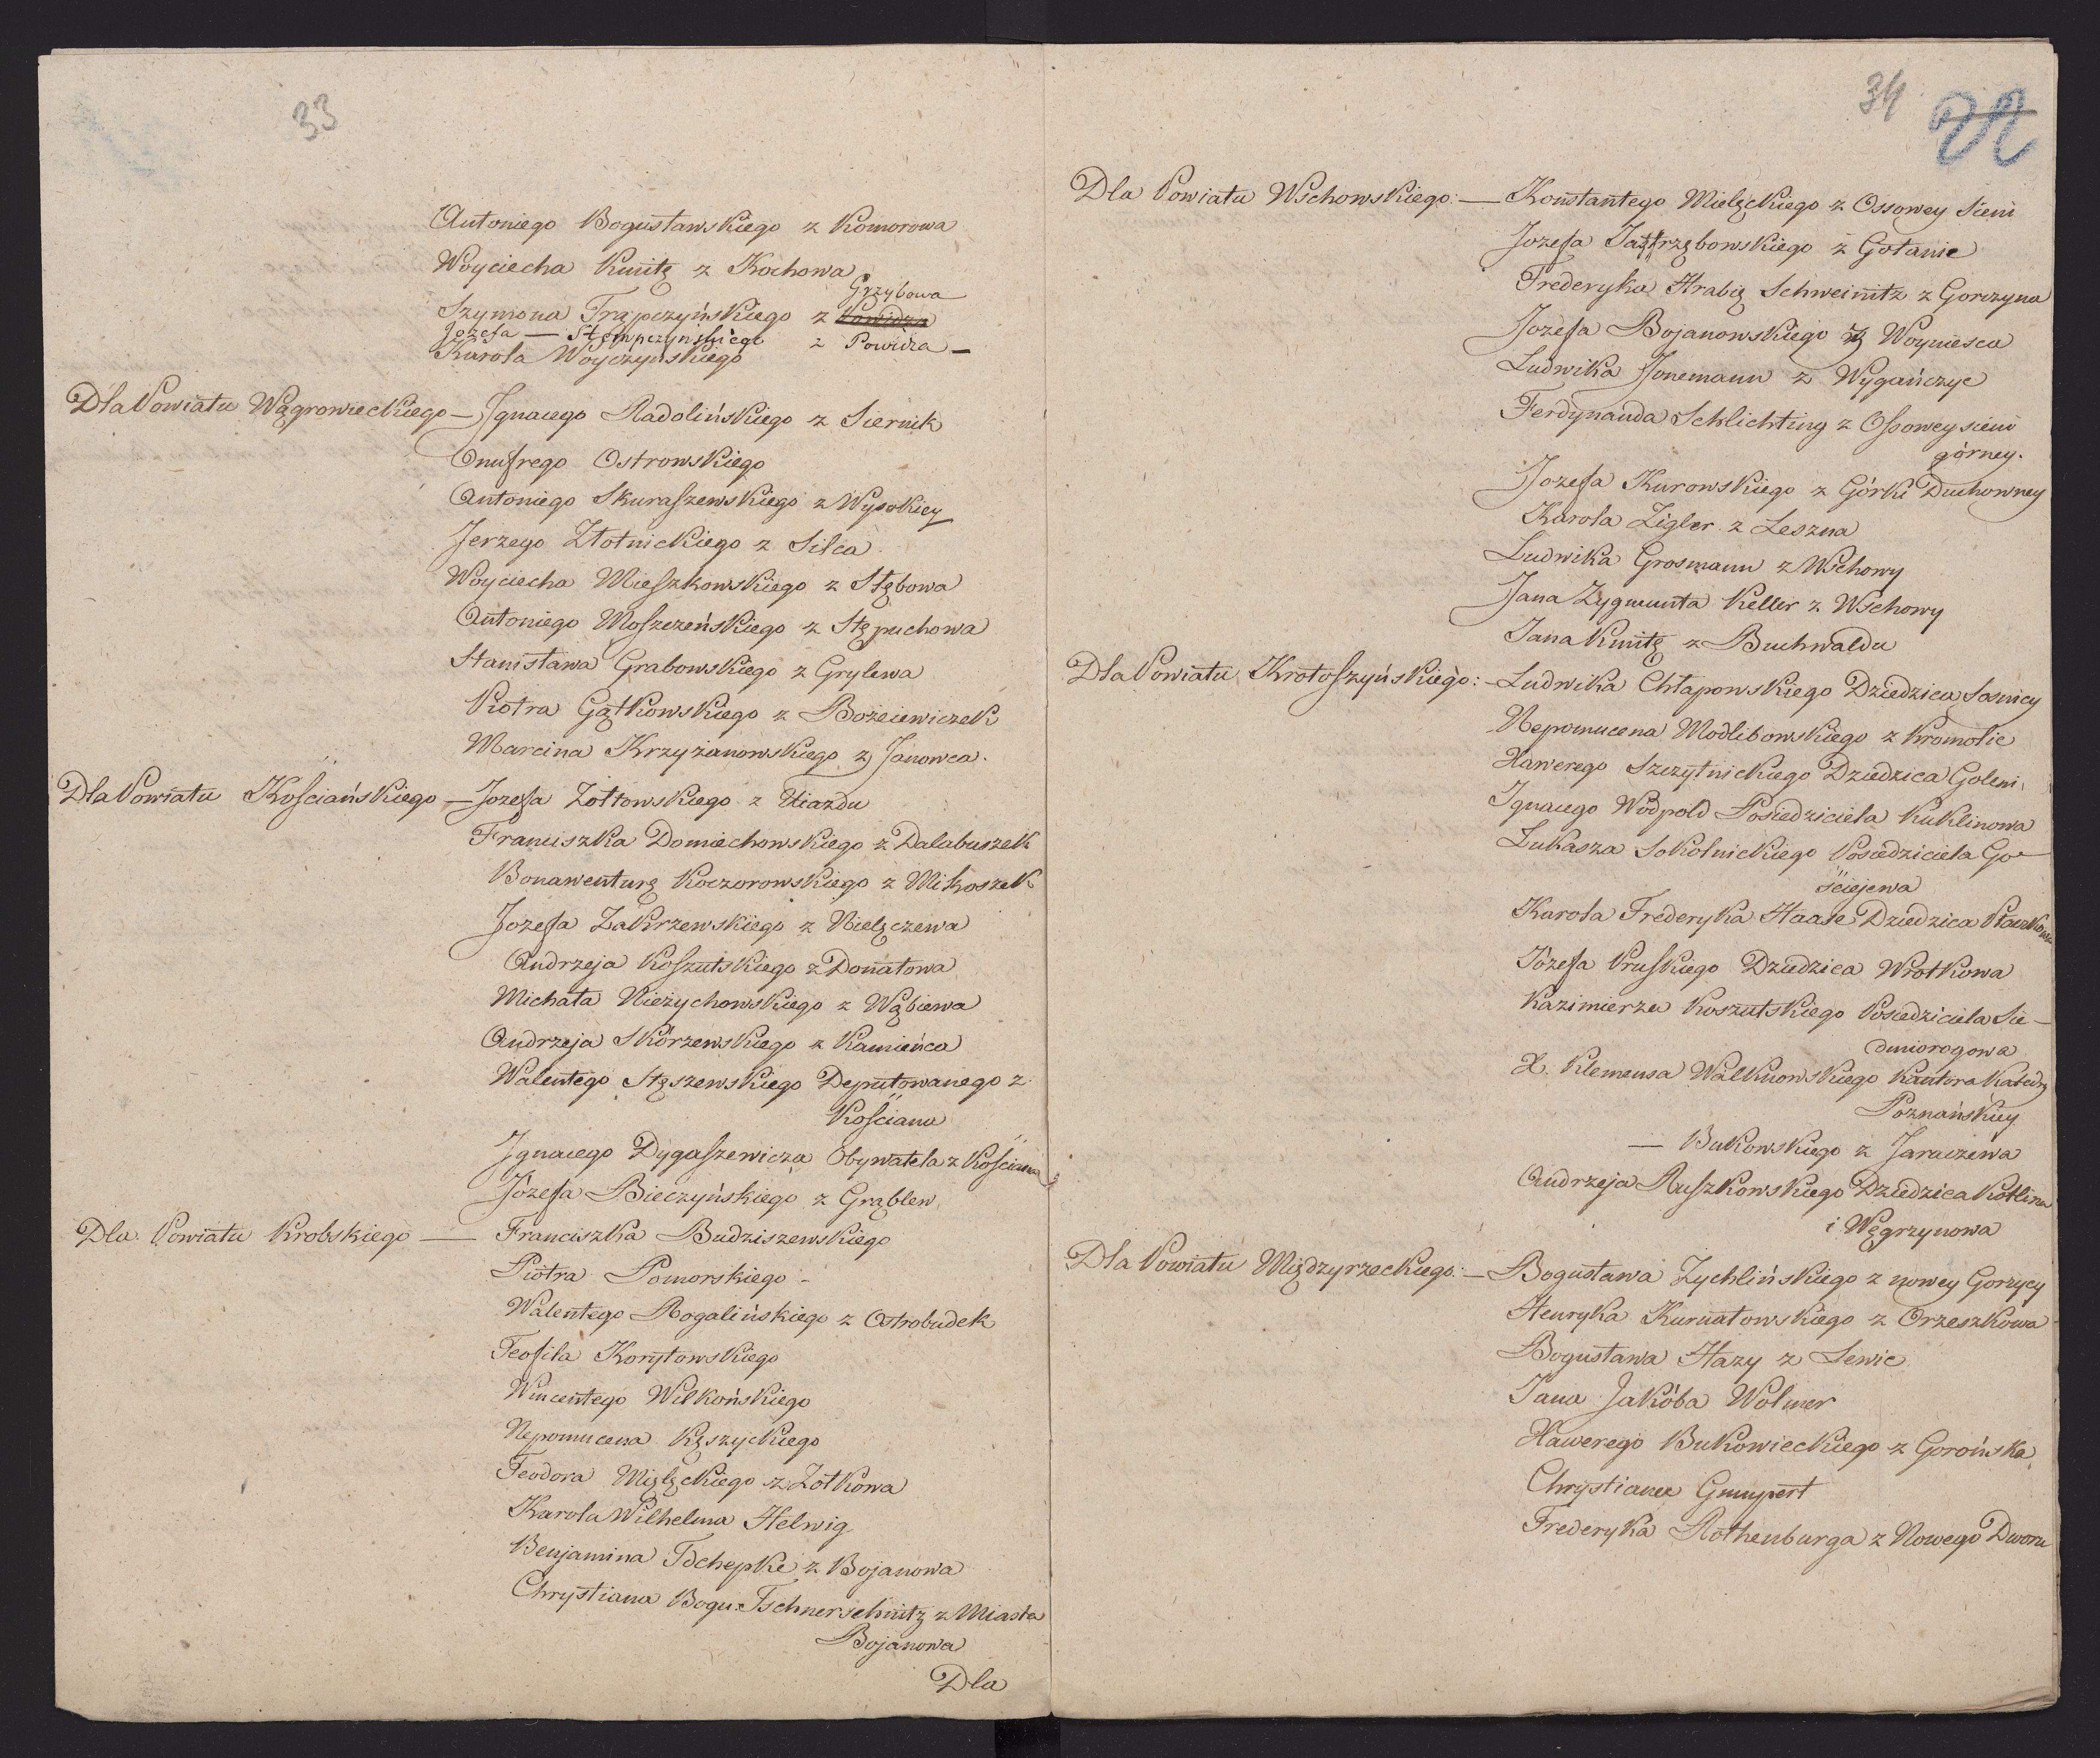 33
Antoniego Bogusławskiego z Komorowa
Woyciecha Kmitę z Kochowa
Grzybowa
Szymona Trąpczyńskiego z Powidza
Jozefa — Stempczyńskiego z Powidza —
Karola Woyczyńskiego
Dla Powiatu Wągrowieckiego — Ignacego Radolińskiego z Siernik
Onufrego Ostrowskiego
Antoniego Skuraszewskiego z Wysokiey
Jerzego Złotnickiego z Silca
Woyciecha Mieszkowskiego z Stębowa
Antoniego Moszczeńskiego z Stępuchowa
Stanisława Grabowskiego z Grylewa
Piotra Gątkowskiego z Bozeiewiczek
Marcina Krzyżanowskiego z Janowca.
Dla Powiatu Kościańskiego — Jozefa Zołtowskiego z Uiazdu
Franciszka Domiechowskiego z Dalabuszek
Bonawenturę Koczorowskiego z Mikoszek
Jozefa Zakrzewskiego z Nielęczewa
Andrzeja Koszutskiego z Donatowa
Michała Nieżychowskiego z Wąbiewa
Andrzeja Skórzewskiego z Kamieńca
Walentego Stęszewskiego Deputowanego z
Kościana
Ignacego Dygaszewicza Obywatela z Kościana
Józefa Bieczyńskiego z Grąblew
Dla Powiatu Krobskiego — Franciszka Budziszewskiego
Piotra Pomorskiego -
Walentego Rogalińskiego z Ostrobudek
Teofila Korytowskiego
Wincentego Wilkońskiego
Nepomucena Kęszyckiego
Teodora Mięlęckiego z Zołkowa
Karola Wilhelma Helwig
Benjamina Tschepke z Bojanowa
Chrystiana Bogu. Tschnerschnitz z Miasta
Bojanowa
Dla
34
Dla Powiatu Wschowskiego: — Konstantego Mielęckiego z Ossowey Sieni
Jozefa Jastrzębowskiego z Gołanie
Frederyka Hrabię Schweinitz z Gorczyna
Jozefa Bojanowskiego z Woyniesca
Ludwika Jonemann z Wygańczyc
Ferdynanda Schlichting z Ossowey sieni
górney.
Jozefa Kurowskiego z Górki Duchowney
Karola Zigler z Leszna
Ludwika Grosmann z Wschowy
Jana Zygmunta Keller z Wschowy
Jana Kmitę z Buchwaldu
Dla Powiatu Krotoszyńskiego: — Ludwika Chłapowskiego Dziedzica Sosnicy
Nepomucena Modlibowskiego z Kromolic
Xawerego Szczytnickiego Dziedzica Goleni
Ignacego Wodpold Posiedziciela Kuklinowa
Łukasza Sokolnickiego Posiedziciela Go-
ściejewa
Karola Frederyka Haase Dziedzica Płaczkowa
Józefa Pruskiego Dziedzica Wrotkowa
Kazimierza Koszutskiego Posiedziciela Sie-
dmiorogowa
X. Klemensa Walknowskiego Kantora Katedry
Poznańskiey
— Bukowskiego z Jaraczewa
Andrzeja Ruszkowskiego Dziedzica Kotlina
i Węgrzynowa
Dla Powiatu Międzyrzeckiego: — Bogusława Zychlińskiego z nowey Gorzycy
Henryka Kurnatowskiego z Orzeszkowa
Bogusława Hazy z Lewic
Jana Jakóba Wolmer
Xawerego Bukowieckiego z Gorońska
Chrystiana Gumpert
Frederyka Rothenburga z Nowego Dworu